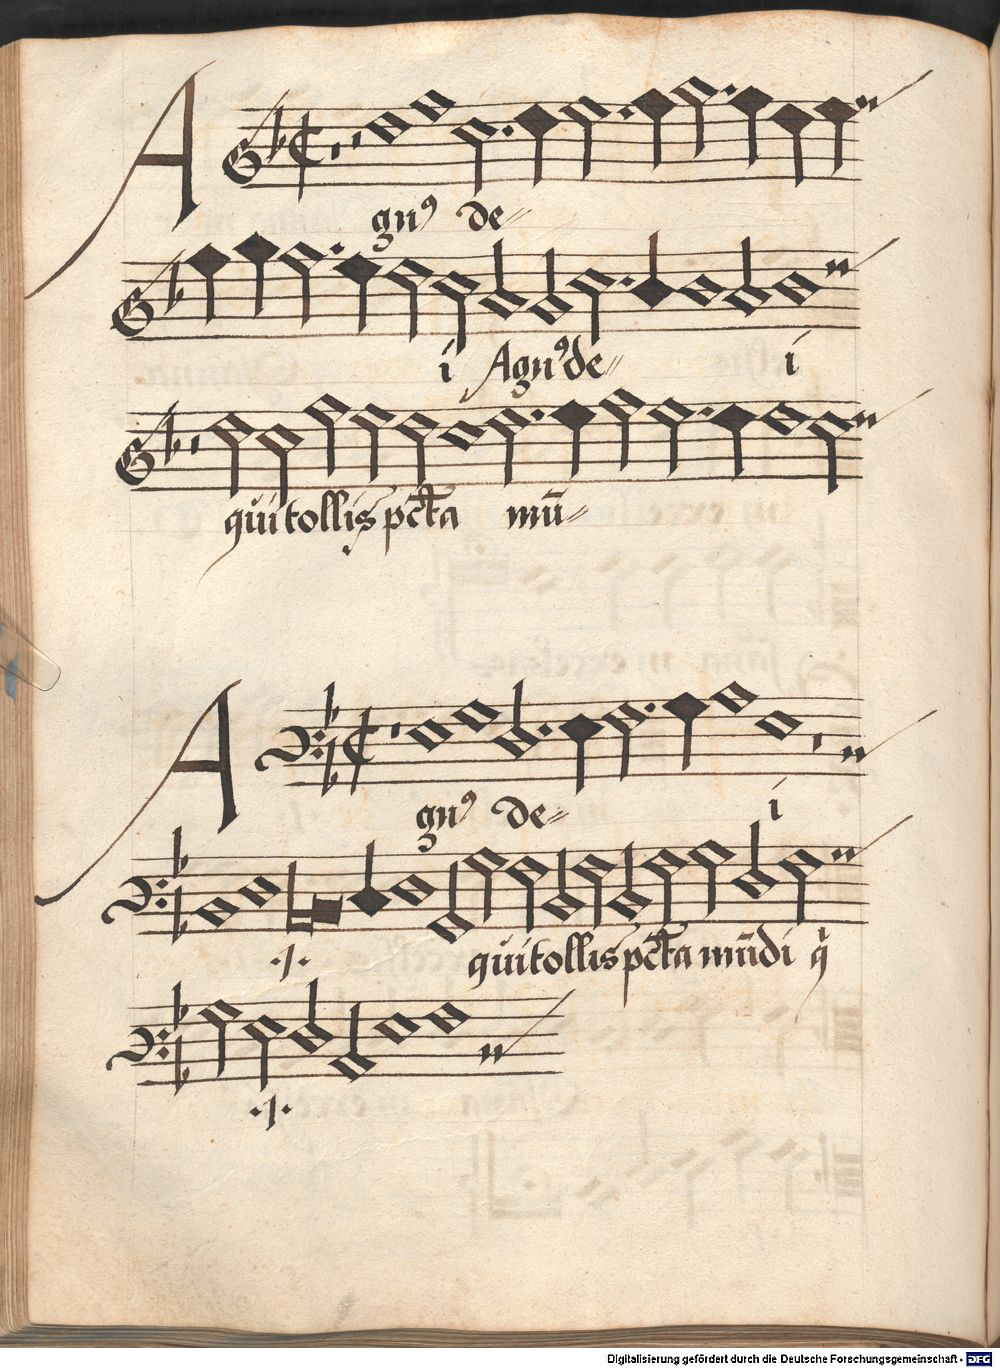 A
gnꝰ de⸗
i Agnꝰ de⸗ i
qui tollis pc̄ta mū⸗
A
gnꝰ de⸗ i
·/· qui tollis pc̄ta mūdi q
·/·
Digitalisierung gefördert durch die Deutsche Forschungsgemeinschaft - DFG